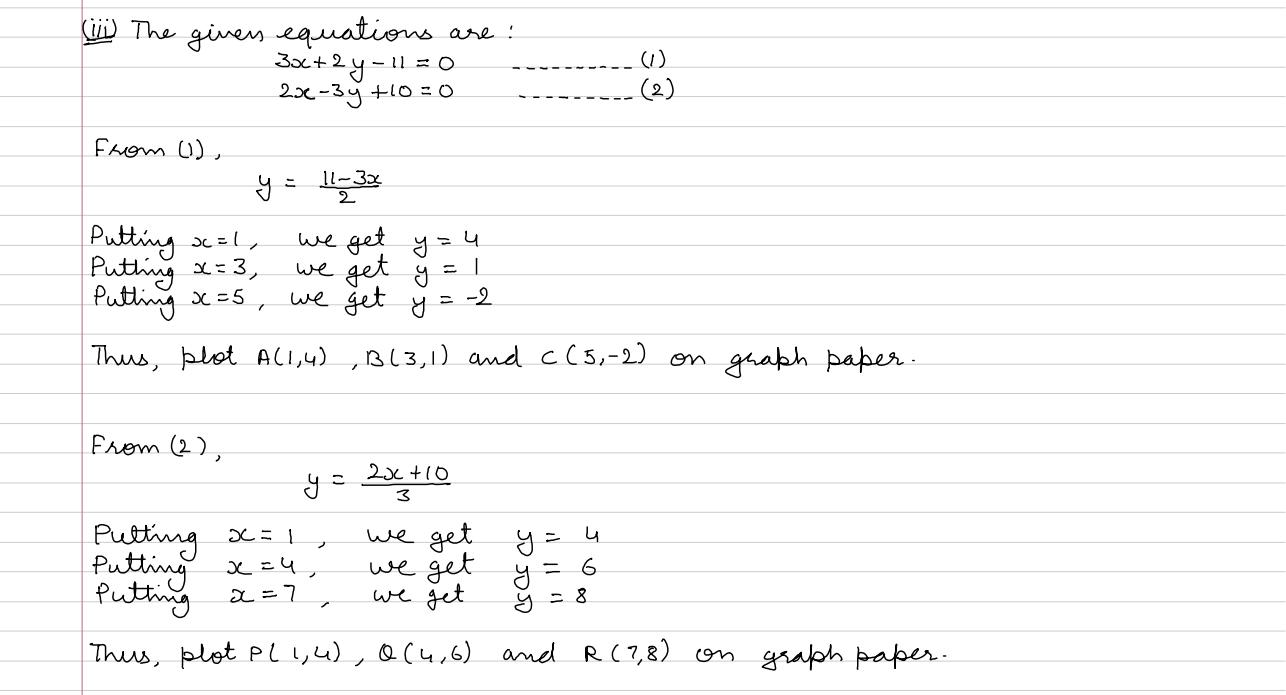 (iii) The given equations are :
3x+2y-11=0 ---------- (1)
2x-3y+10=0 ---------- (2)
From (1),
y = 11-3x/2
Putting x=1, we get y = 4
Putting x=3, we get y = 1
Putting x=5, we get y = -2
Thus, plot A(1,4), B(3,1) and C(5,-2) on graph paper.
From (2),
y = 2x+10/3
Putting x=1, we get y = 4
Putting x=4, we get y = 6
Putting x=7, we get y = 8
Thus, plot P(1,4), Q(4,6) and R(7,8) on graph paper.